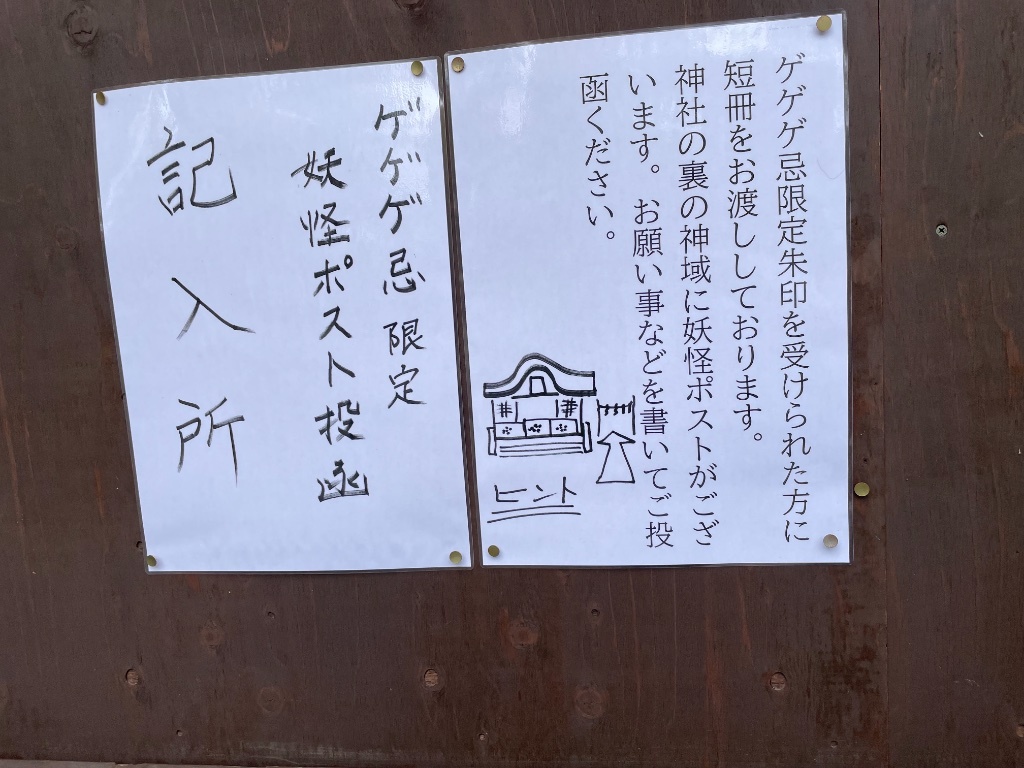 ゲゲゲ忌限定朱印を受けられた方に
短冊をお渡ししております。
神社の裏の神域に妖怪ポストがござ
います。お願い事などを書いてご投
函ください。
ヒント
ゲゲゲ忌限定
妖怪ポスト投函
記入所